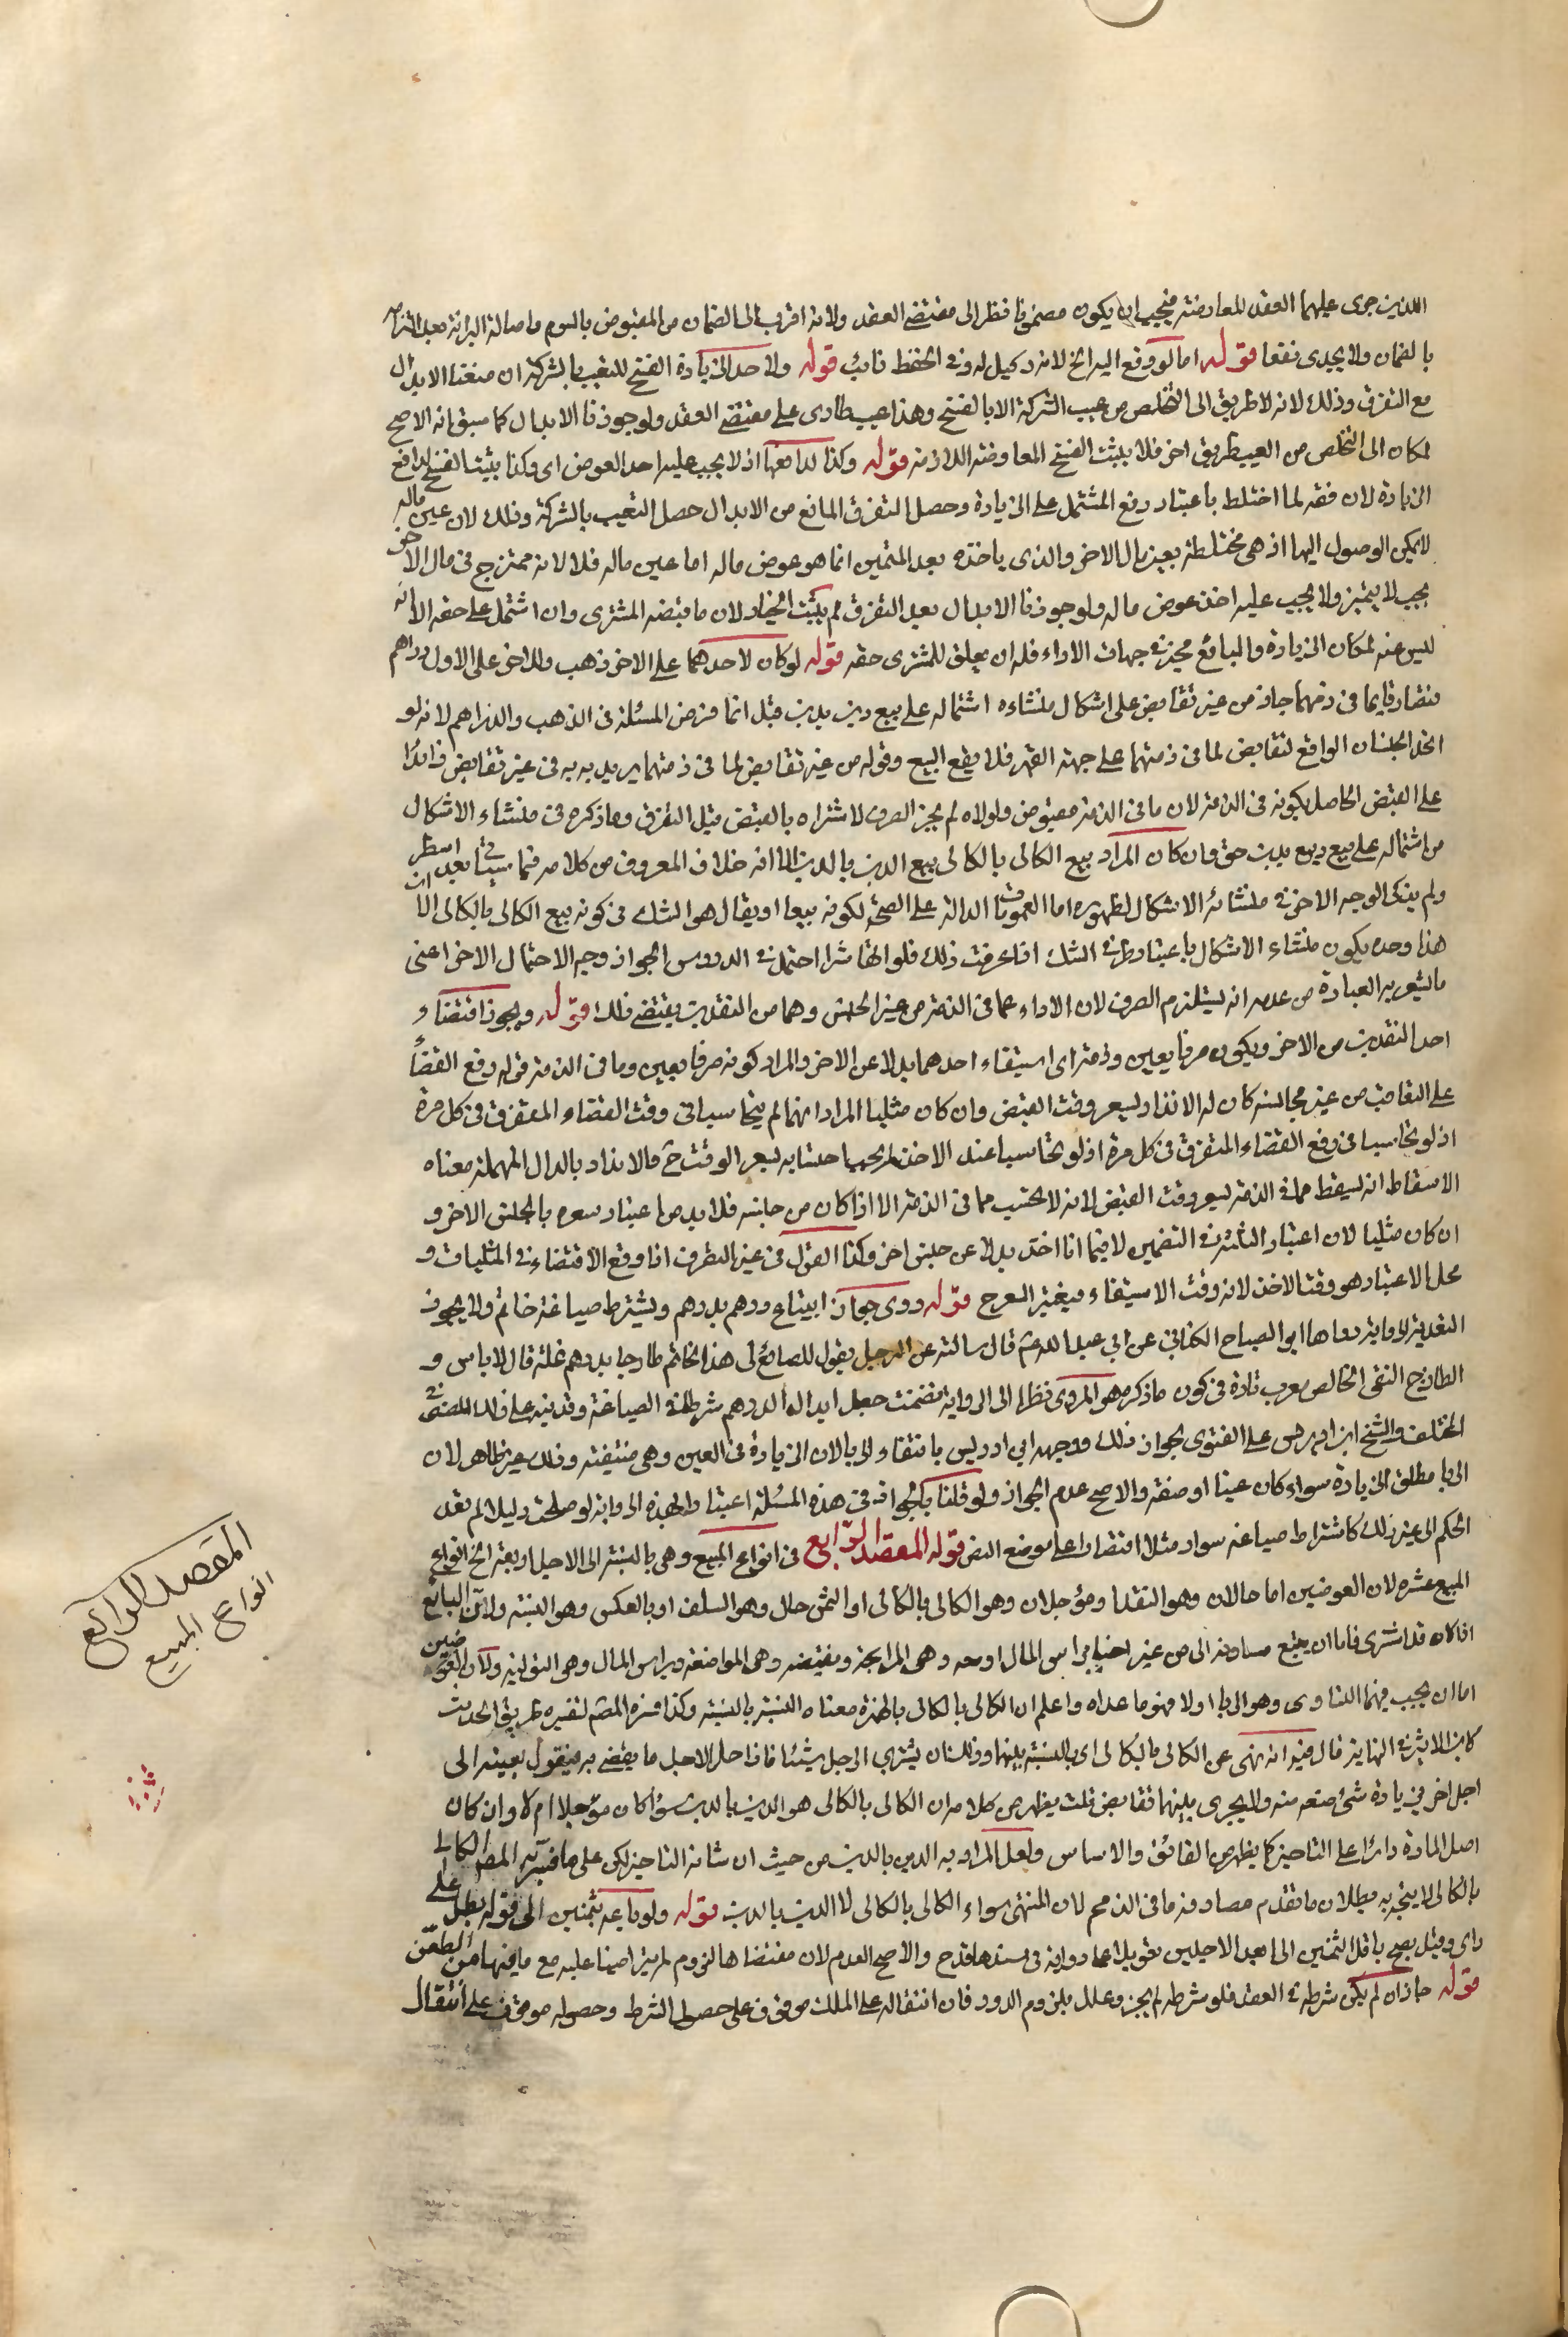 اللذين جرى عليهما العقد للمعاوضة فيجب ان يكون مضمونا نظرا الى مقتضى العقد ولانه اقرب الى الضمان من المقبوض بالسوم واصالة البرائة بعد التزام
بالضمان ولا يجدى نفعا قوله اما لو وقع اليه الخ لانه وكيل له فى الحفظ نائب قوله ولاحد الزيادة الفسخ للتعيب بالشركة ان منعنا الابدال
مع التفرق وذلك لانه لا طريق الى التخلص من عيب الشركة الا بالفسخ وهذا عيب طارى على مقتضى العقد ولو جوزنا الابدال كما سبق انه الاصح
لكان الى التخلص من العيب طريق اخر فلا يثبت الفسخ المعاوضة اللازمة قوله وكذا لدافعها اذ لا يجب عليه اخذ العوض اى وكذا يثبت الفسخ لدافع
الزيادة لان حقه لما اختلط باعتبار دفع المشتمل على الزيادة وحصل التفرق المانع من الابدال حصل التعيب بالشركة وذلك لان عين ماله
لا يمكن الوصول اليها اذ هى مختلطة بعين مال الاخر والذى ياخذه بعد التمييز انما هو عوض ماله اما عين ماله فلا لانه ممتزج فى مال الاخر
بحيث لا يتميز ولا يجب عليه اخذ عوض ماله ولو جوزنا الابدال بعد التفرق لم يثبت الخيار لان ما قبضه المشترى وان اشتمل على حقه الا انه
ليس عنه لمكان الزيادة والبائع مخير فى جهات الاداء فله ان يعلق للمشترى حقه قوله لو كان لاحدهما على الاخر ذهب وللاخر على الاول دراهم
فتصارفا بما فى ذمتهما جاز من غير تقابض على اشكال منشاءه اشتماله على بيع دين بدين قيل انما فرض المسئلة فى الذهب والدراهم لانه لو
اتحد الجنسان الواقع لتقابض لما فى ذمتهما على جهة القهر فلا يقع البيع وقوله من غير تقابض لما فى ذمتهما يريد به فى غير تقابض زائدا
على القبض الحاصل بكونه فى الذمة لان ما فى الذمة مقبوض ولولاه لم يجز الصرف لاشتراطه بالقبض قبل التفرق وما ذكره فى منشاء الاشكال
من اشتماله على بيع دين بدين حق وان كان المراد ببيع الكالى بالكالى بيع الدين بالدين الا انه خلاف المعروف من كلامه فيما سياتى بعد اسطر
ولم يذكر الوجه الاخر فى منشائه الاشكال لظهوره اما العمومات الدالة على الصحة لكونه بيعا او يقال هو الشك فى كونه بيع الكالى بالكالى الا ان
هذا وحده يكون منشاء الاشكال باعتبار طرفى الشك اذا عرفت ذلك فلو اتفاشرا احتمل فى الدروس الجواز وجه الاحتمال الاخر اعنى
ما يشعر به العبارة من عدمه انه يستلزم الصرف لان الاداء عما فى الذمة من غير الجنس وهما من النقدين يقتضى ذلك قوله ويجوز اقتضاء
احد النقدين من الاخر ويكون صرفا بعين وذمة اى استيفاء احدهما بدلا عن الاخر والمراد كونه صرفا بعين وما فى الذمة قوله دفع القضاء
على التعاقب من غير محاسبة كان له الانذار بسعر وقت القبض وان كان مثليا المراد انهما لم يتحاسبا فى وقت القضاء المتفرق فى كل مرة
اذ لو تحاسبا فى دفع القضاء المتفرق فى كل مرة اذ لو تحاسبا عند الاخذ لم يجب احتسابه بسعر الوقت ح والانذار بالدال المهملة معناه
الاسقاط انه يسقط مما فى الذمة بسعر وقت القبض لانه لا يحتسب مما فى الذمة الا اذا كان من جانبه فلا بد من اعتبار سعره بالجنس الاخر و
ان كان مثليا لان اعتبار التاثير فى التضمين لا فيما اذا اخذ بدلا عن جنس اخر وكذا القول فى غير النقدين اذا وقع الاقتضاء فى المثليات و
محل الاعتبار هو وقت الاخذ لانه وقت الاستيفاء فيعتبر السعر ح قوله وروى جواز ابتياع درهم بدرهم ويشترط صياغة خاتم ولا يجوز
التعدية الرواية رواها ابو الصباح الكنانى عن ابى عبد الله ع قال سالته عن الرجل يقول للصائغ لى هذا الخاتم طازجا بدرهم غلة قال لا باس و
الطازج النقى الخالص معرب تازه فى كون ما ذكره هو المروى نظر الى الرواية تضمنت جعل ابدال الدرهم شرطا فى الصياغة وقد نبه على ذلك المصنف فى
المختلف والشيخ ابن ادريس على الفتوى بجواز ذلك ووجهه ابن ادريس بانتفاء الربا لان الزيادة فى العين وهى منتفية وذلك غير ظاهر لان
الربا مطلق الزيادة سواء كان عينا او صفة والاصح عدم الجواز ولو قلنا بالجواز فى هذه المسئلة اعتبارا لهذه الرواية لو صلحت دليلا لم نعد
الحكم الى غير ذلك كاشتراط صياغة سوار مثلا اقتصارا على موضع النص قوله المقصد الرابع فى انواع المبيع وهى بالنسبة الى الاجل اربعة الخ انواع
المبيع عشرة لان العوضين اما حالان وهو النقد او مؤجلان وهو الكالى بالكالى او الثمن حال وهو السلف او بالعكس وهو النسية ولان البائع
اذا كان قد اشترى فاما ان يبيع مساومة اى من غير اخبار براس المال او معه وهى المرابحة ونقيضه وهى المواضعة وبراس المال وهو التولية ولان العوضين
اما ان يجب فيهما التساوى وهو الربا او لا فهو ما عداه واعلم ان الكالى بالكالى بالهمزة معناه النسية بالنسية وكذا فسره المصنف لتفسيره طريق الحديث
كابن الاثير فى النهاية قال فيه انه نهى عن الكالى بالكالى اى بالنسية بينهما وذلك ان يشترى الرجل شيئا فاذا حل الاجل ما يقضى به فيقول بعينه الى
اجل اخر بزيادة شئ فبيعه منه ولا يجرى بينهما تقابض قلت يظهر من كلامه ان الكالى بالكالى هو الدين بالدين سواء كان مؤجلا ام لا وان كان
اصل المادة دائرا على التاخير كما يظهر من الفائق والاساس ولعل المراد به الدين بالدين من حيث ان شانه التاخير لكن على ما فسر به المصنف الكالى
بالكالى لا يتجه به بطلان ما تقدم مصادفة ما فى الذمم لان المنهى سواء الكالى بالكالى لا الدين بالدين قوله ولو باعه بثمنين الى قوله بطل على
راى وقيل يصح باقل الثمنين الى ابعد الاجلين تعويلا على رواية فى سندها قدح والاصح العدم لان مقتضاها لزوم لم يتراضيا عليه مع ما فيها من الطعن
قوله جاز ان لم يكن شرطه فى العقد فلو شرطه لم يجز وعلل بلزوم الدور فان انتقاله على الملك موقوف على حصول الشرط وحصوله موقوف على انتقال
المقصد الرابع
انواع المبيع